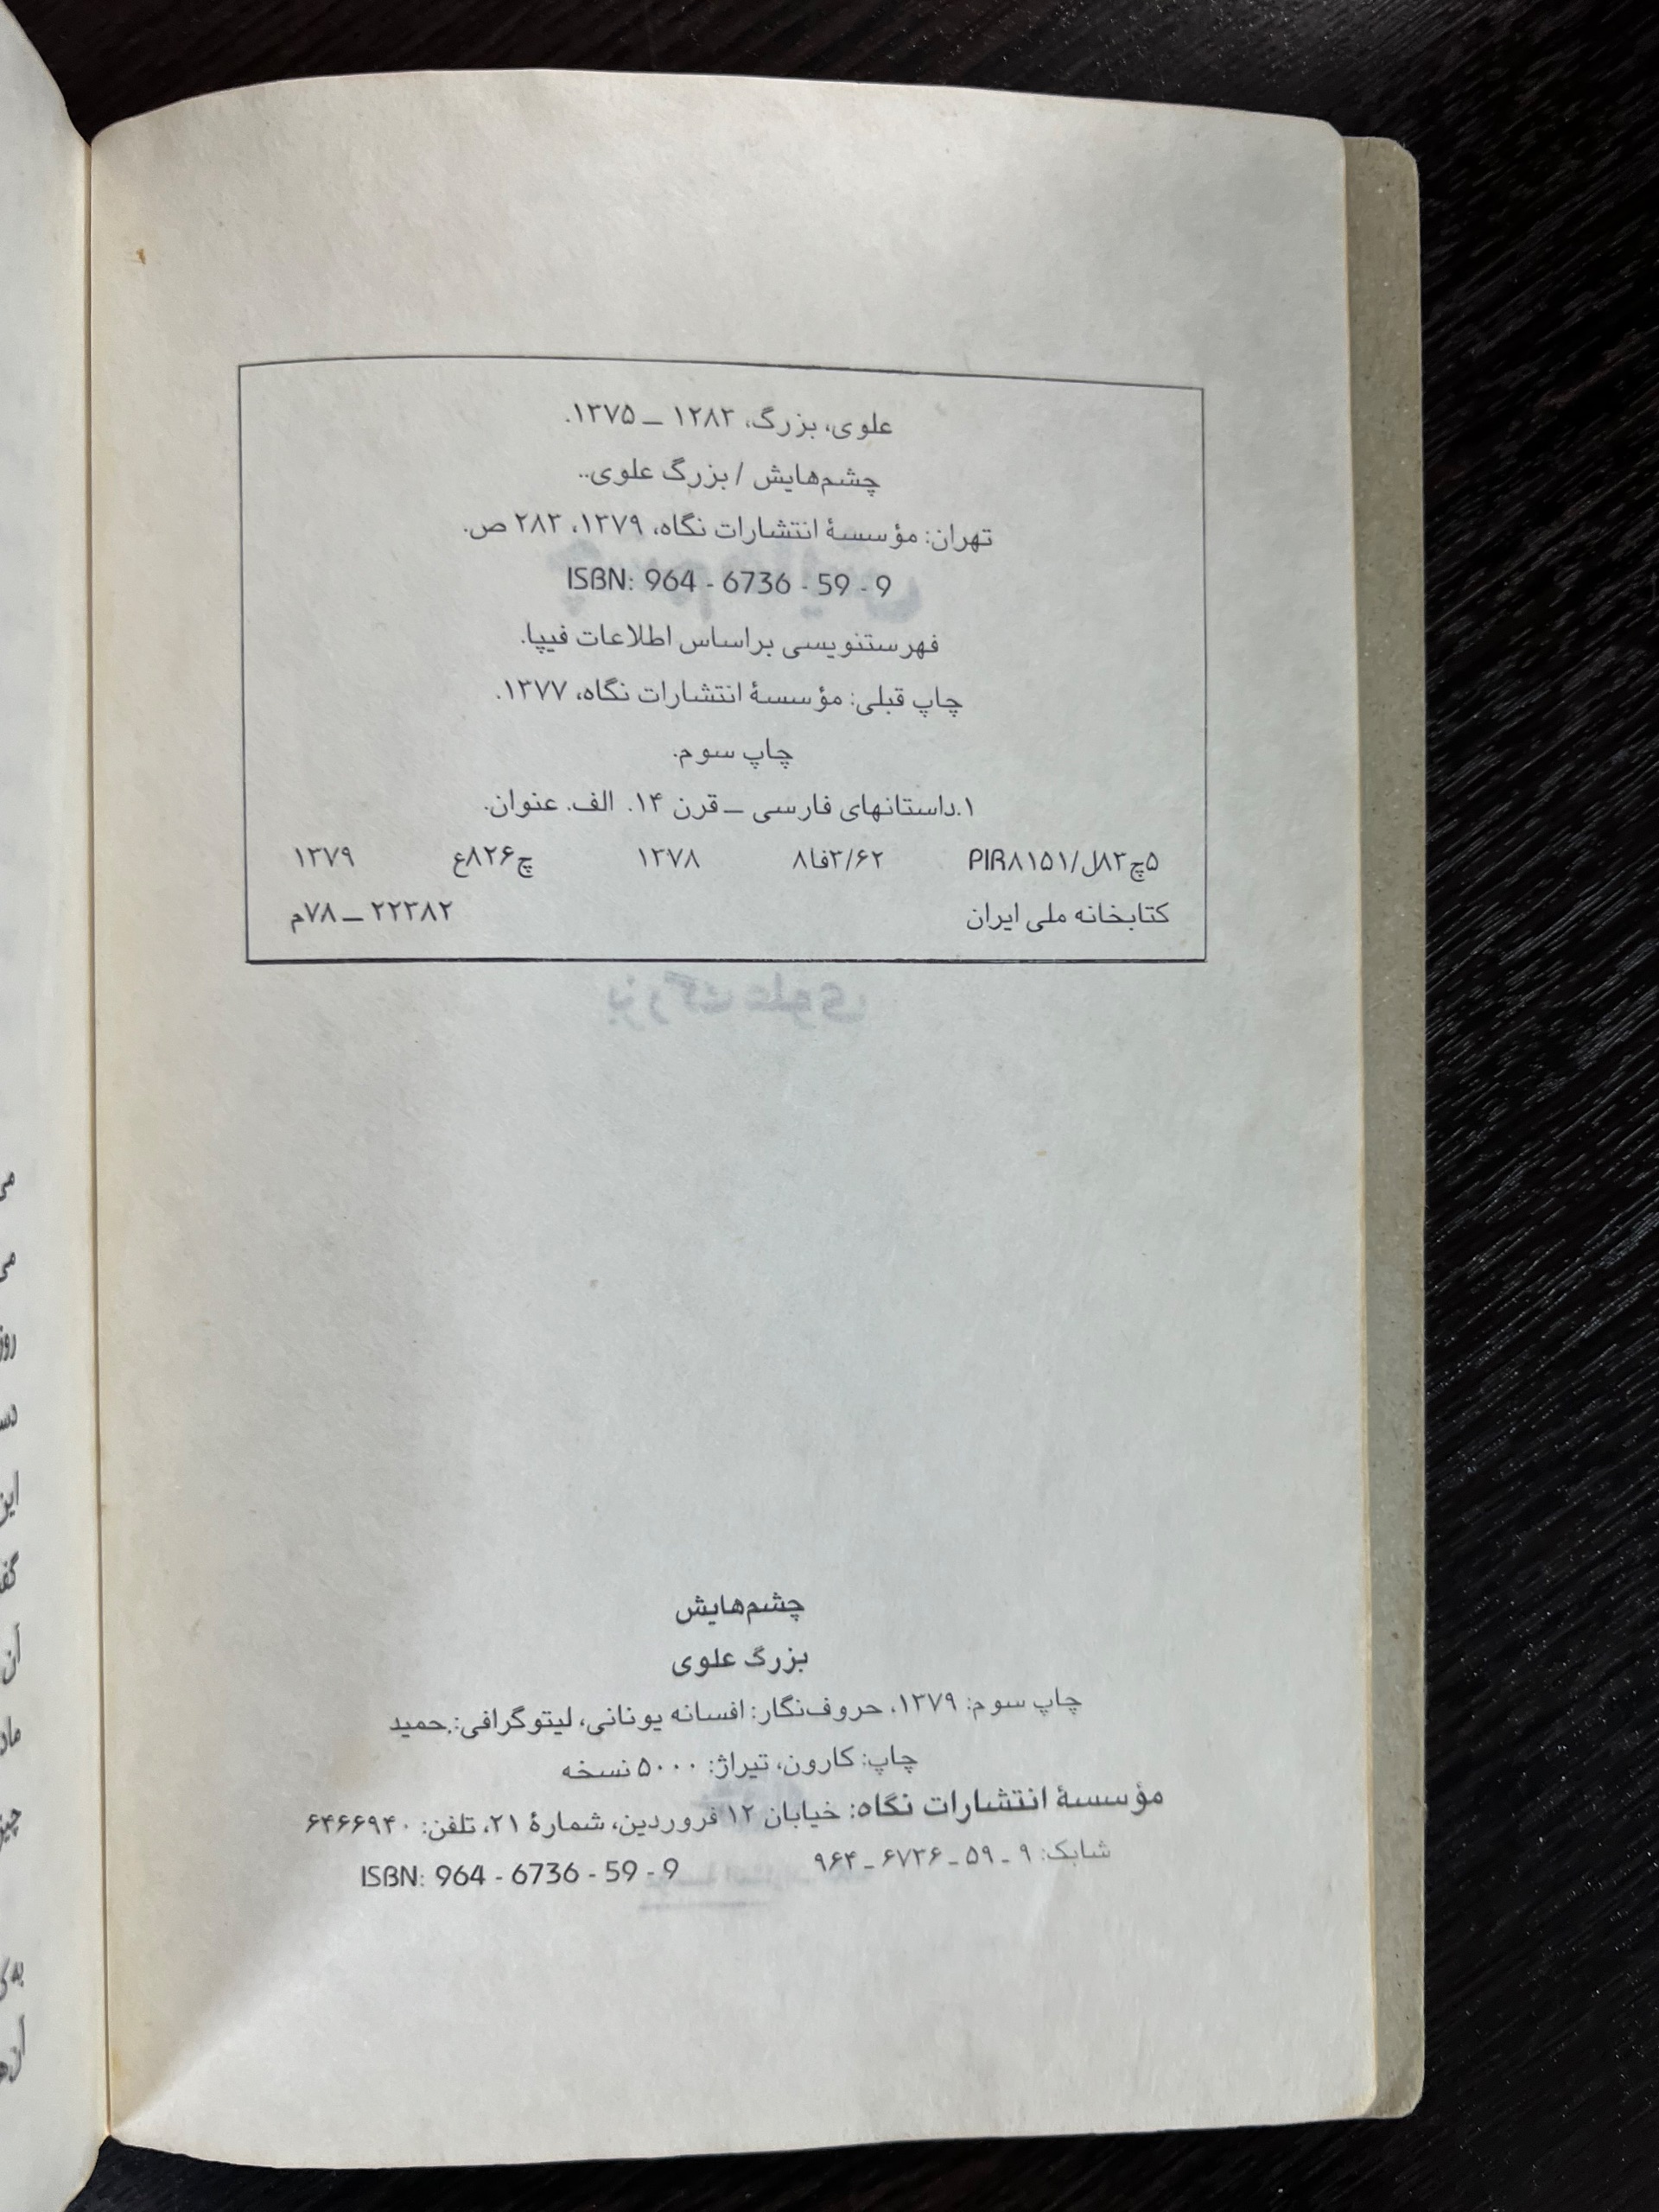 علوی، بزرگ، ۱۲۸۳ ــ ۱۳۷۵.
چشم‌هایش / بزرگ علوی..
تهران: مؤسسهٔ انتشارات نگاه، ۱۳۷۹، ۲۸۳ ص.
ISBN: 964 - 6736 - 59 - 9
فهرستنویسی براساس اطلاعات فیپا.
چاپ قبلی: مؤسسهٔ انتشارات نگاه، ۱۳۷۷.
چاپ سوم.
۱.داستانهای فارسی ــ قرن ۱۴. الف. عنوان.
۵چ۸۳ل/PIR۸۱۵۱ ۸فا۳/۶۲ ۱۳۷۸ چ۸۲۶ع ۱۳۷۹
کتابخانه ملی ایران ۲۲۳۸۲ ــ ۷۸م
چشم‌هایش
بزرگ علوی
چاپ سوم: ۱۳۷۹، حروف‌نگار: افسانه یونانی، لیتوگرافی: حمید
چاپ: کارون، تیراژ: ۵۰۰۰ نسخه
مؤسسهٔ انتشارات نگاه: خیابان ۱۲ فروردین، شمارهٔ ۲۱، تلفن: ۶۴۶۶۹۴۰
شابک: ۹ ـ ۵۹ ـ ۶۷۳۶ ـ ۹۶۴ ISBN: 964 - 6736 - 59 - 9